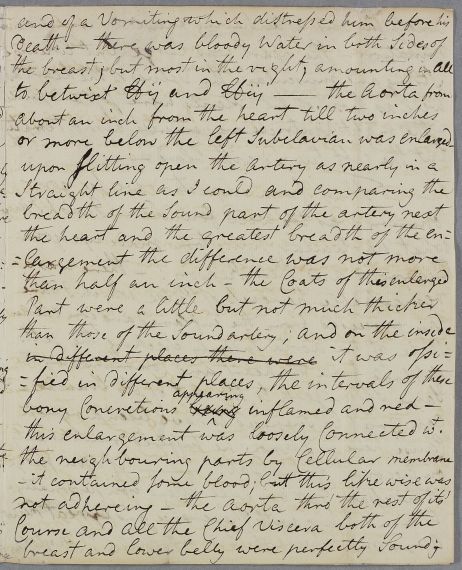 and of a Vomiting which distressed him before his
Death — there was bloody Water in both Sides of
the breast, but most in the right, amounting in all
to betwixt ℔ij and ℔iij —— the Aorta from
about an inch from the heart till two inches
or more below the left Subclavian was enlarged
upon Slitting open the Artery as nearly in a
Straight line as I could and comparing the
breadth of the Sound part of the artery next
the heart and the greatest breadth of the en-
=largement the difference was not more
than half an inch - the Coats of this enlarged
Part were a little but not much thicker
than those of the Sound artery, and on the inside
in different places there were it was ossi=
=fied in different places, the intervals of these
bony Concretions appearing being inflamed and red —
this enlargement was loosely Connected wt.
the neighbouring parts by Cellular membrane
- it contained some blood, but this likewise was
not adhereing — the Aorta thro' the rest of its'
Course and all the Chief Viscera both of the
breast and lower belly were perfectly Sound;